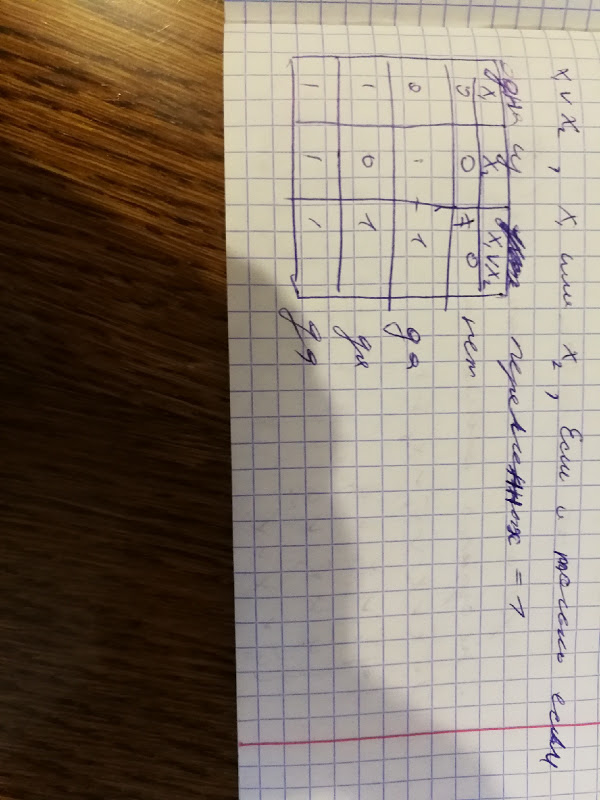 x v x₂, x₁ или x₂, Если и только если
одна из переменных = 1
x₁ x₂ x₁ v x₂
0 0 0 нет
0 1 1 да
1 0 1 да
1 1 1 да